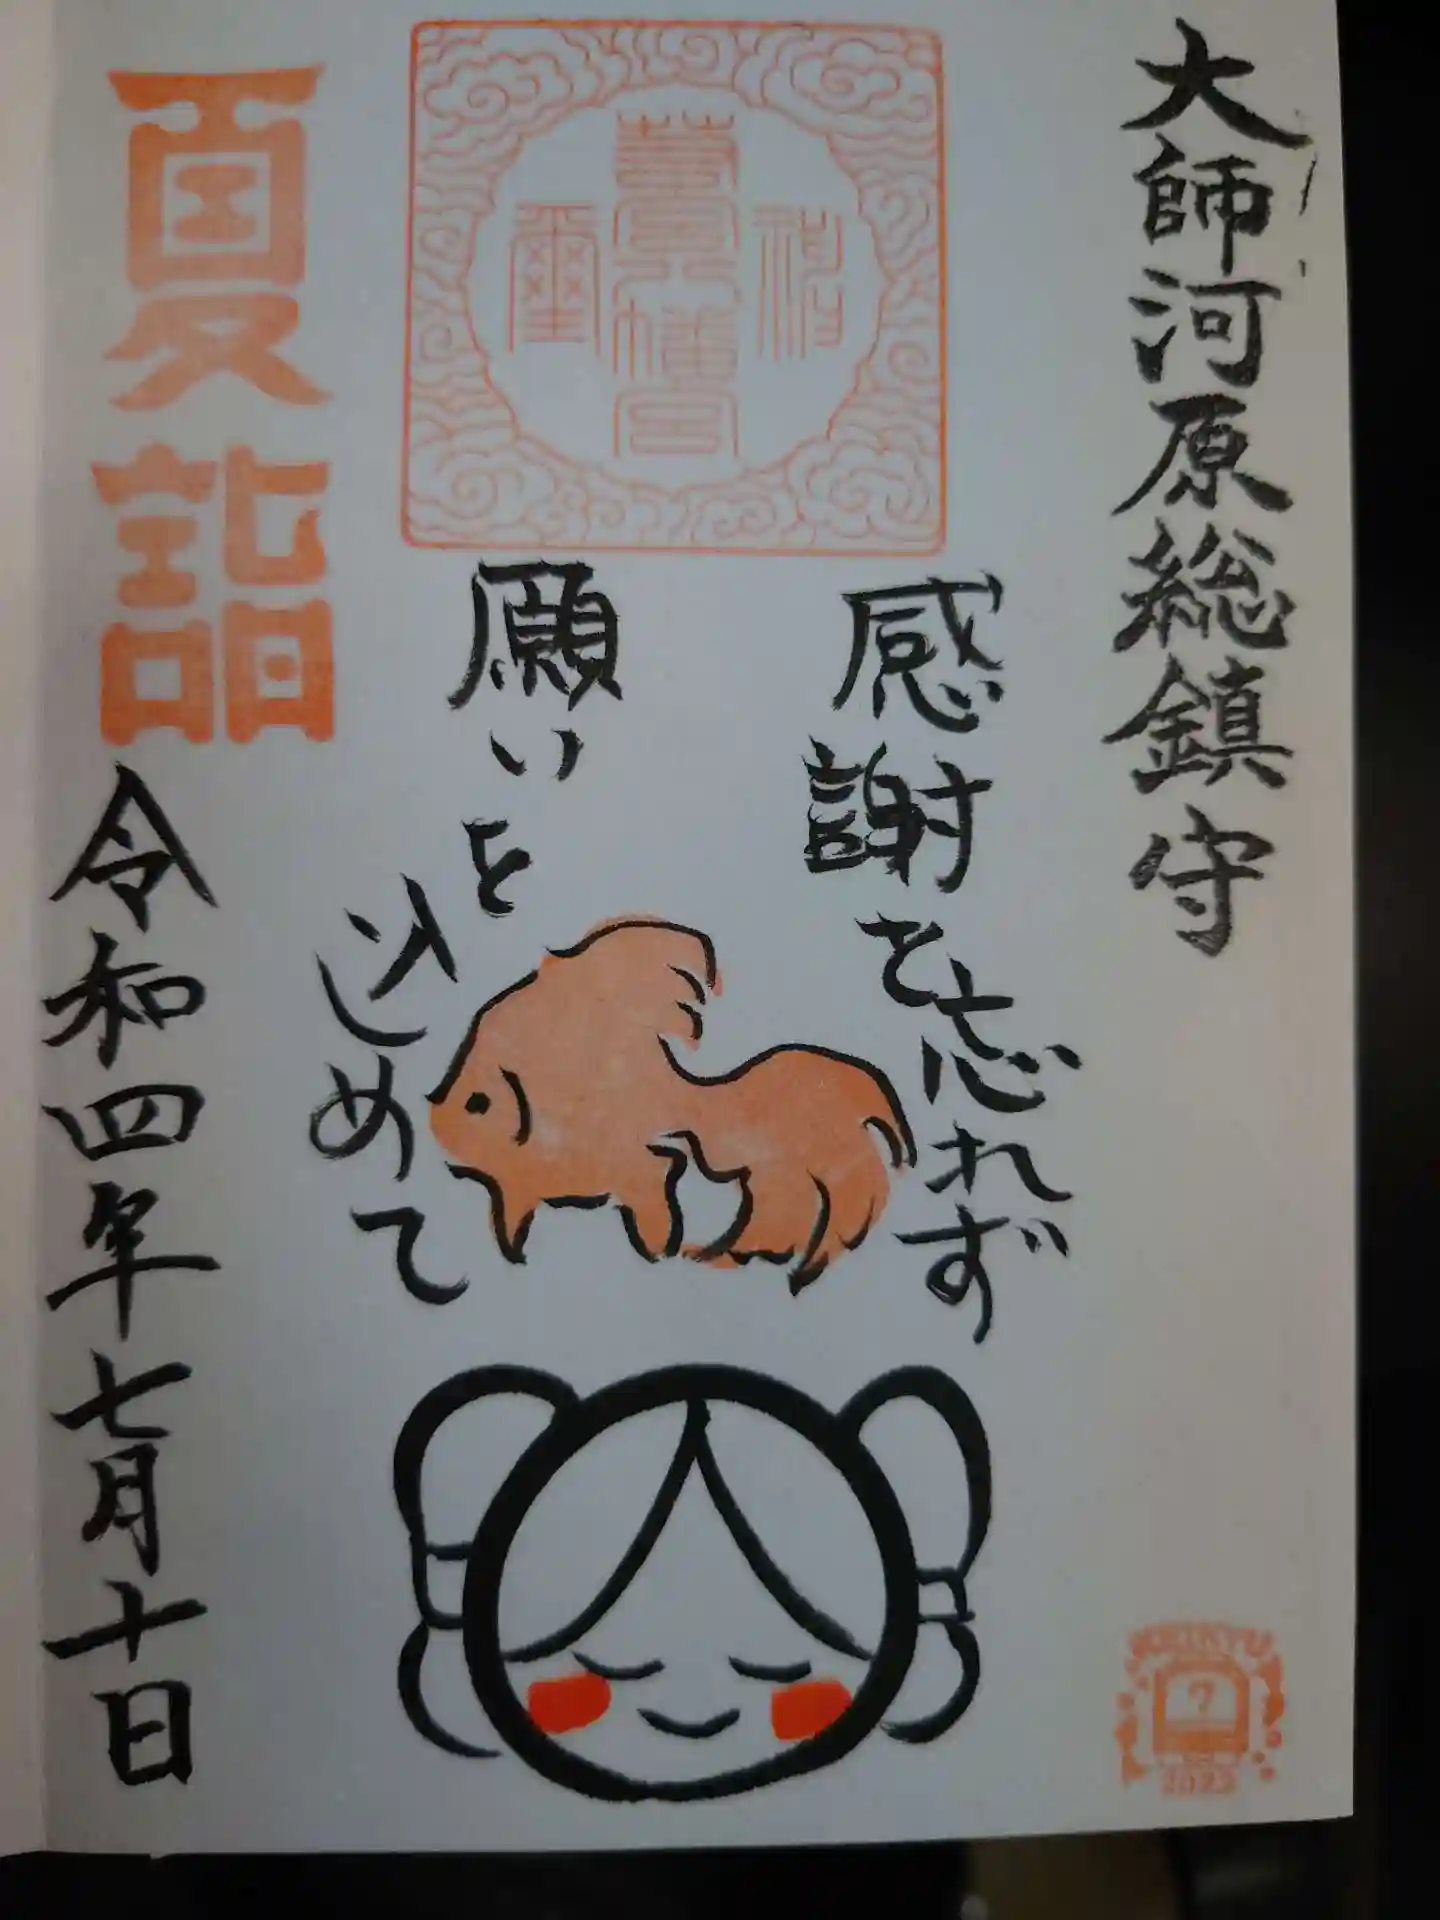 大師河原総鎮守
感謝を忘れず
願いを
込めて
夏詣
令和四年七月十日
KEIKYU
7
2022